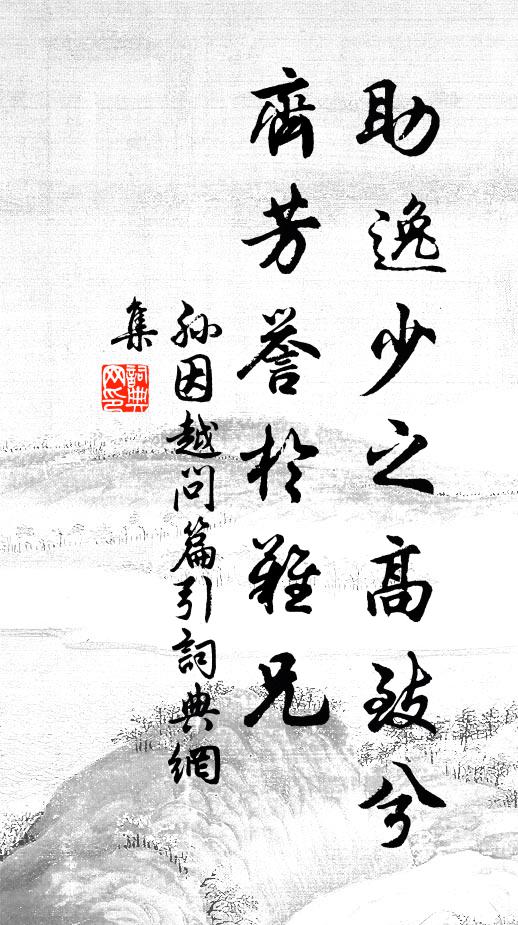 助逸少之高致兮
齊芳誉於難兄
孙因越问篇引詞典網
集
詞典
网印